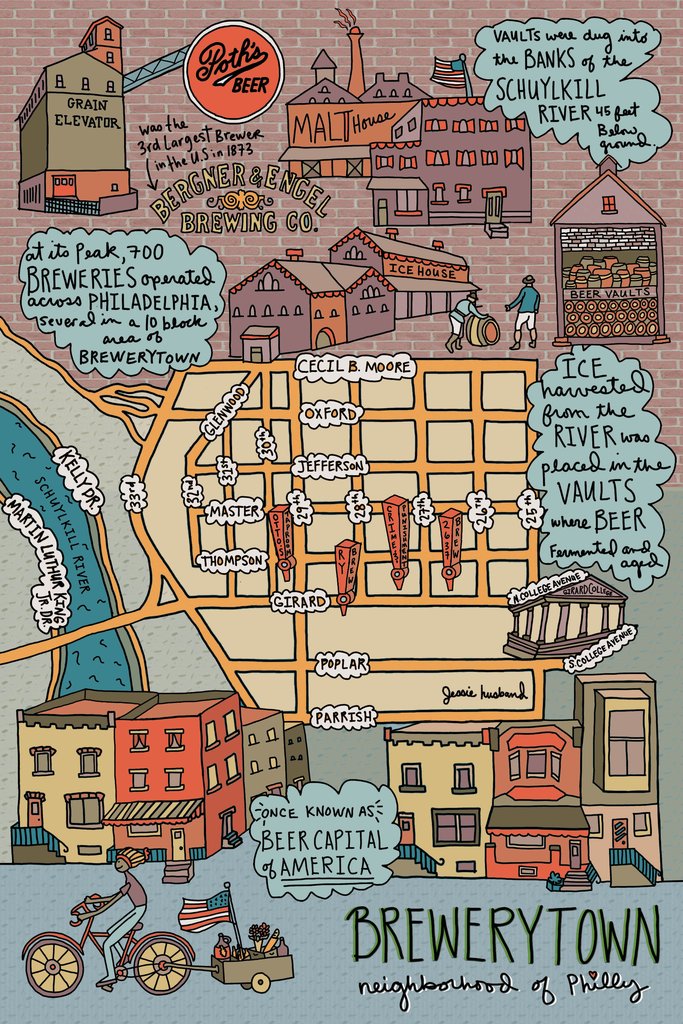 Poth's
BEER
GRAIN
ELEVATOR
was the
3rd Largest Brewer
in the U.S. in 1873
BERGNER & ENGEL
BREWING CO.
MALT House
VAULTS were dug into
the BANKS of the
SCHUYLKILL
RIVER 45 feet
Below
ground.
at its Peak, 700
BREWERIES operated
across PHILADELPHIA,
several in a 10 block
area of
BREWERYTOWN
ICE HOUSE
BEER VAULTS
ICE
harvested
from the
RIVER was
placed in the
VAULTS
where BEER
Fermented and
aged
CECIL B. MOORE
GLENWOOD
OXFORD
30TH
JEFFERSON
31ST
32ND
33RD
MASTER
29TH
28TH
27TH
26TH
25TH
KELLY DR.
SCHUYLKILL RIVER
MARTIN LUTHUR KING
JR. DR.
OTTOS
TAPROOM
RY
BREW
CRIME &
PUNISHMENT
2637
BREW
THOMPSON
GIRARD
N. COLLEGE AVENUE
GIRARD COLLEGE
S. COLLEGE AVENUE
POPLAR
Jessie husband
PARRISH
ONCE KNOWN AS
BEER CAPITAL
of AMERICA
BREWERYTOWN
neighborhood of Philly